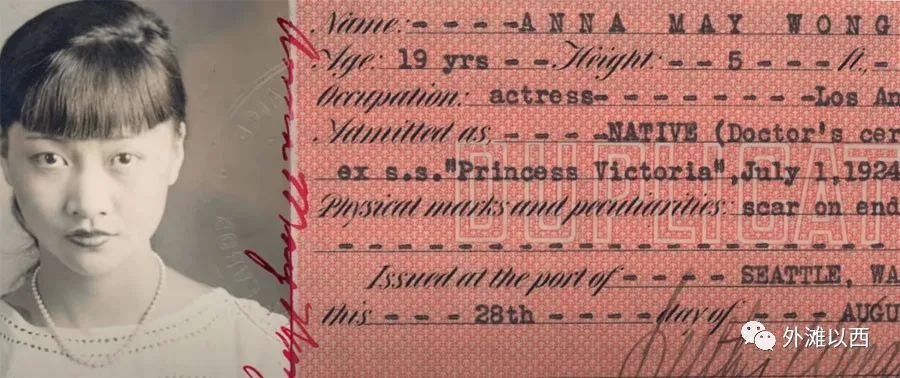 Name: - - - - ANNA MAY WONG
Age: 19 yrs - - Height: - - 5 - - ft., -
Occupation: actress- - - - - - - -Los An
Admitted as, - - - - -NATIVE (Doctor's cer
ex s.s."Princess Victoria",July 1,1924
Physical marks and peculiarities: scar on end
DUPLICAT
- - - - - - - - - - - - - - - - - - - - -
Issued at the port of - - - - SEATTLE, WA
this - - - 28th - - - - -day of - - - AUGU
Anna May Wong
外滩以西